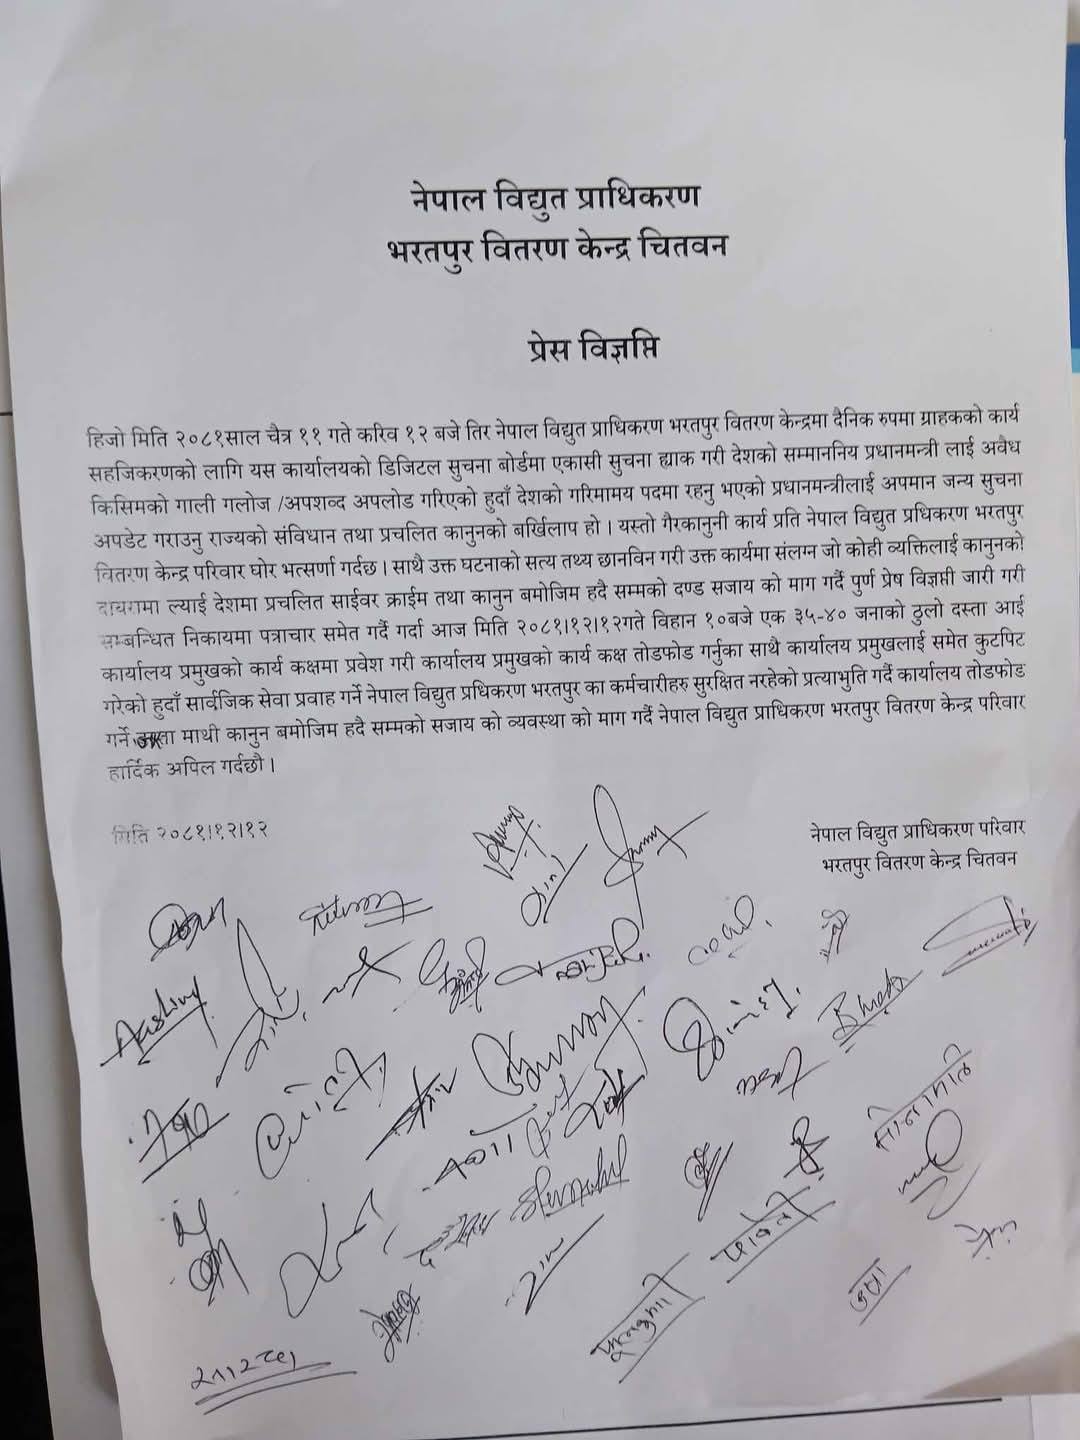 नेपाल विद्युत प्राधिकरण
भरतपुर वितरण केन्द्र चितवन
प्रेस विज्ञप्ति
हिजो मिति २०८१साल चैत्र ११ गते करिव १२ बजे तिर नेपाल विद्युत प्राधिकरण भरतपुर वितरण केन्द्रमा दैनिक रुपमा ग्राहकको कार्य
सहजिकरणको लागि यस कार्यालयको डिजिटल सुचना बोर्डमा एकासी सुचना ह्याक गरी देशको सम्माननिय प्रधानमन्त्री लाई अवैध
किसिमको गाली गलोज /अपशव्द अपलोड गरिएको हुदाँ देशको गरिमामय पदमा रहनु भएको प्रधानमन्त्रीलाई अपमान जन्य सुचना
अपडेट गराउनु राज्यको संविधान तथा प्रचलित कानुनको बर्खिलाप हो । यस्तो गैरकानुनी कार्य प्रति नेपाल विद्युत प्रधिकरण भरतपुर
वितरण केन्द्र परिवार घोर भत्सर्णा गर्दछ । साथै उक्त घटनाको सत्य तथ्य छानविन गरी उक्त कार्यमा संलग्न जो कोही व्यक्तिलाई कानुनको
दायरामा ल्याई देशमा प्रचलित साईवर क्राईम तथा कानुन बमोजिम हदै सम्मको दण्ड सजाय को माग गर्दै पुर्ण प्रेष विज्ञप्ती जारी गरी
सम्बन्धित निकायमा पत्राचार समेत गर्दै गर्दा आज मिति २०८१।१२।१२गते विहान १०बजे एक ३५-४० जनाको ठुलो दस्ता आई
कार्यालय प्रमुखको कार्य कक्षमा प्रवेश गरी कार्यालय प्रमुखको कार्य कक्ष तोडफोड गर्नुका साथै कार्यालय प्रमुखलाई समेत कुटपिट
गरेको हुदाँ सार्वजिक सेवा प्रवाह गर्ने नेपाल विद्युत प्रधिकरण भरतपुर का कर्मचारीहरु सुरक्षित नरहेको प्रत्याभुति गर्दै कार्यालय तोडफोड
गर्ने माथी कानुन बमोजिम हदै सम्मको सजाय को व्यवस्था को माग गर्दै नेपाल विद्युत प्राधिकरण भरतपुर वितरण केन्द्र परिवार
हार्दिक अपिल गर्दछौ ।
मिति २०८१।१२।१२
नेपाल विद्युत प्राधिकरण परिवार
भरतपुर वितरण केन्द्र चितवन